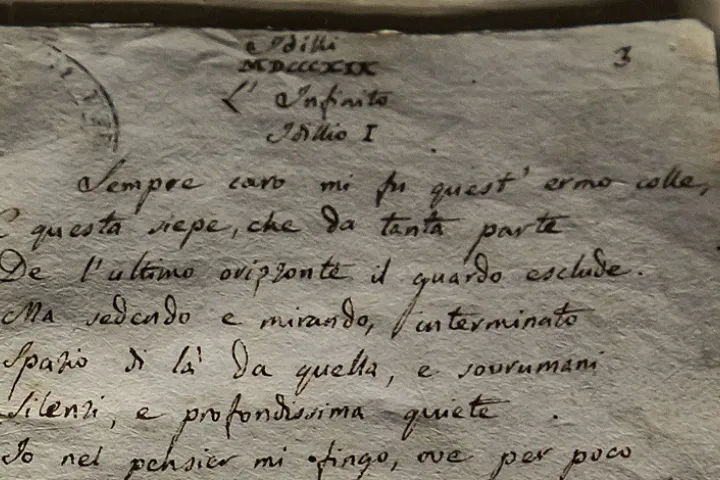 Idilli
MDCCCXIX
3
L' Infinito
Idillio I
Sempre caro mi fu quest' ermo colle,
E questa siepe, che da tanta parte
De l'ultimo orizzonte il guardo esclude.
Ma sedendo e mirando, interminato
Spazio di là da quella, e sovrumani
Silenzi, e profondissima quiete
Io nel pensier mi fingo, ove per poco